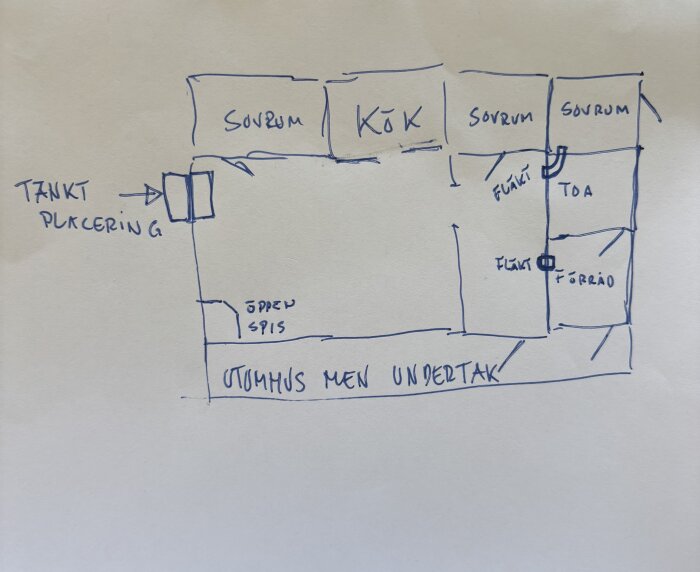 SOVRUM
KÖK
SOVRUM
SOVRUM
TÄNKT
PLACERING
FLÄKT
TOA
FLÄKT
FÖRRÅD
ÖPPEN
SPIS
UTOMHUS MEN UNDERTAK